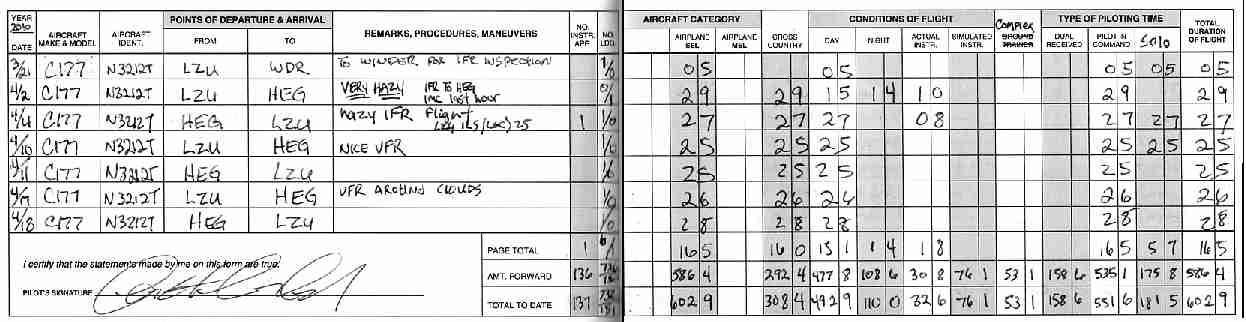 YEAR 2010 DATE AIRCRAFT MAKE & MODEL AIRCRAFT IDENT. POINTS OF DEPARTURE & ARRIVAL FROM TO REMARKS, PROCEDURES, MANEUVERS NO. INSTR. APP. NO. LDG. AIRCRAFT CATEGORY AIRPLANE SEL AIRPLANE MEL CROSS COUNTRY CONDITIONS OF FLIGHT DAY NIGHT ACTUAL INSTR. SIMULATED INSTR. Complex GROUND TRAINER TYPE OF PILOTING TIME DUAL RECEIVED PILOT IN COMMAND Solo TOTAL DURATION OF FLIGHT
3/21 C177 N3212T LZU WDR TO WINDER FOR IFR INSPECTION 1/0 0 5 0 5 0 5 0 5 0 5
4/2 C177 N3212T LZU HEG VERY HAZY IFR TO HEG
IMC last hour 0/1 2 9 2 9 1 5 1 4 1 0 2 9 2 9
4/4 C177 N3212T HEG LZU hazy IFR Flight
LZU ILS/LOC 25 1 1/0 2 7 2 7 2 7 0 8 2 7 2 7 2 7
4/10 C177 N3212T LZU HEG NICE VFR 1/0 2 5 2 5 2 5 2 5 2 5 2 5
4/11 C177 N3212T HEG LZU 1/0 2 5 2 5 2 5 2 5 2 5
4/17 C177 N3212T LZU HEG VFR AROUND CLOUDS 1/0 2 6 2 6 2 6 2 6 2 6
4/18 C177 N3212T HEG LZU 1/0 2 8 2 8 2 8 2 8 2 8
PAGE TOTAL 1 6/1 16 5 16 0 15 1 1 4 1 8 16 5 5 7 16 5
I certify that the statements made by me on this form are true.
AMT. FORWARD 136 586 4 292 4 477 8 108 6 30 8 76 1 53 1 158 6 535 1 175 8 586 4
PILOT'S SIGNATURE
TOTAL TO DATE 137 602 9 308 4 492 9 110 0 32 6 76 1 53 1 158 6 551 6 181 5 602 9